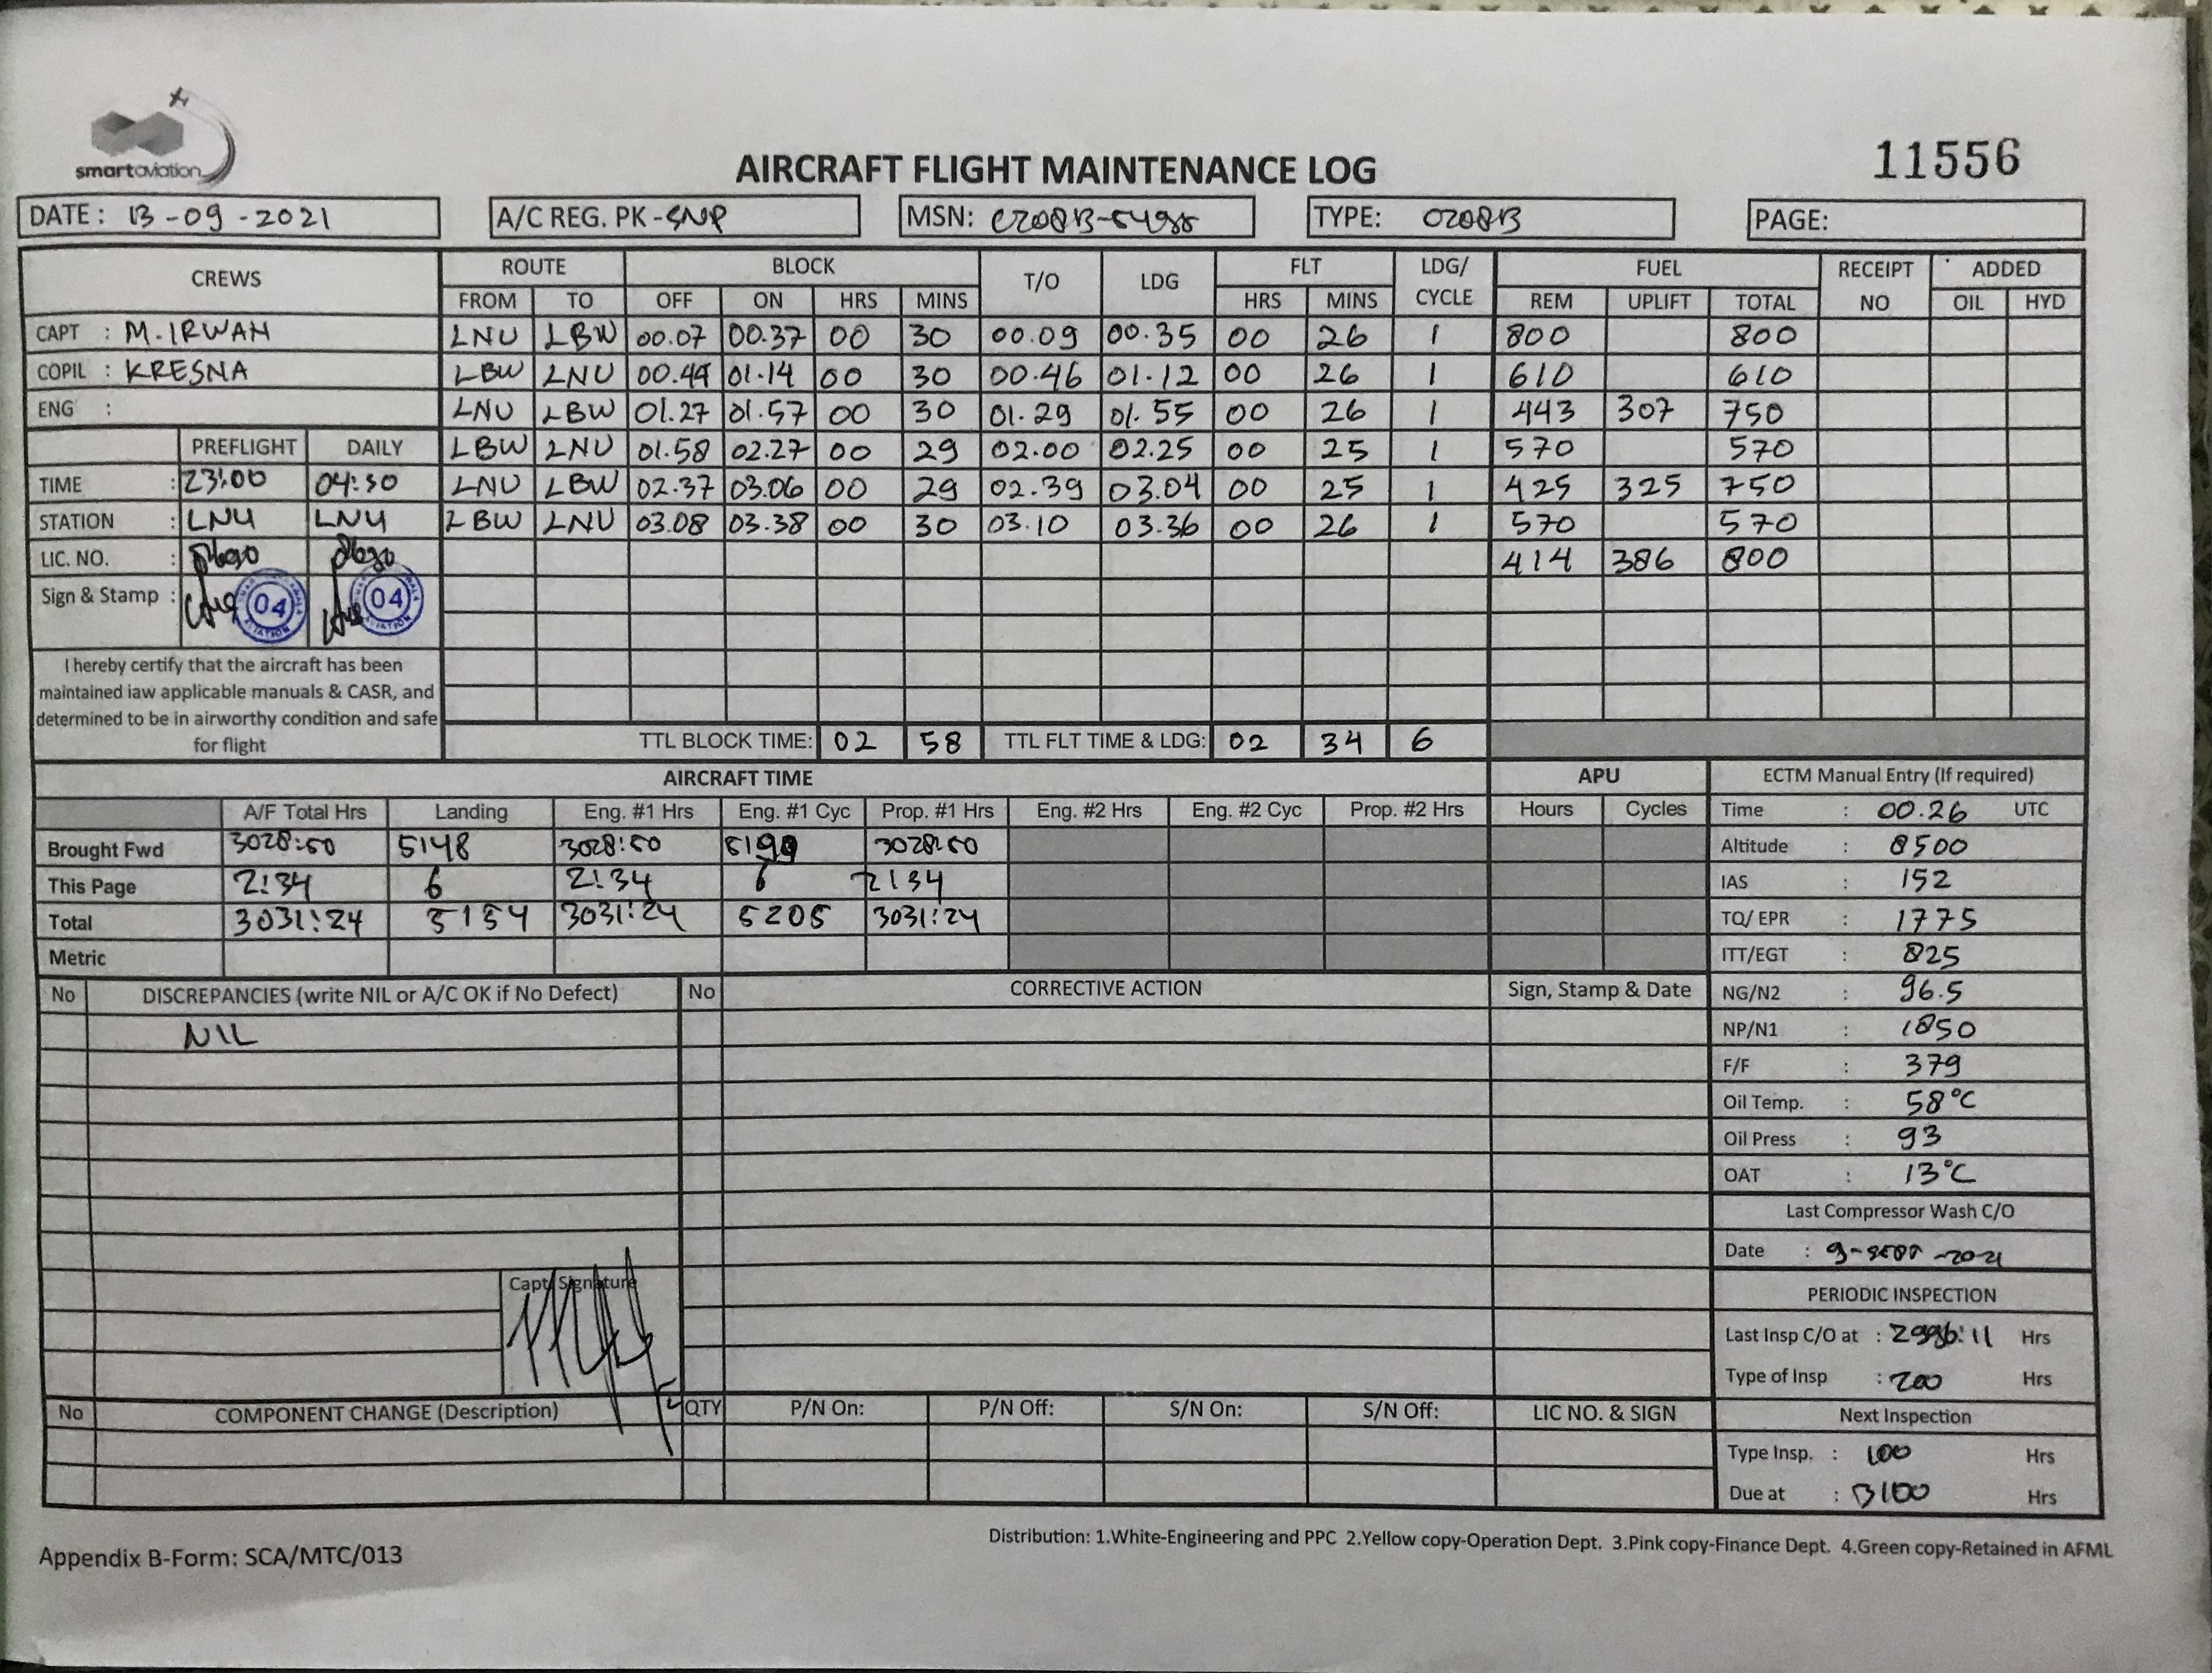 smartaviation
AIRCRAFT FLIGHT MAINTENANCE LOG
11556
DATE : 13-09-2021 A/C REG. PK-SNP MSN: C208B- TYPE: C208B PAGE:
CREWS ROUTE BLOCK T/O LDG FLT LDG/ CYCLE FUEL RECEIPT NO ADDED
FROM TO OFF ON HRS MINS HRS MINS REM UPLIFT TOTAL OIL HYD
CAPT : M. IRWAN LNU LBW 00.07 00.37 00 30 00.09 00.35 00 26 1 800 800
COPIL : KRESNA LBW LNU 00.44 01.14 00 30 00.46 01.12 00 26 1 610 610
ENG : LNU LBW 01.27 01.57 00 30 01.29 01.55 00 26 1 443 307 750
PREFLIGHT DAILY LBW LNU 01.58 02.27 00 29 02.00 02.25 00 25 1 570 570
TIME : 23:00 04:30 LNU LBW 02.37 03.06 00 29 02.39 03.04 00 25 1 425 325 750
STATION : LNU LNU LBW LNU 03.08 03.38 00 30 03.10 03.36 00 26 1 570 570
LIC. NO. : 414 386 800
Sign & Stamp : 04 04
I hereby certify that the aircraft has been
maintained iaw applicable manuals & CASR, and
determined to be in airworthy condition and safe
for flight
TTL BLOCK TIME: 02 58 TTL FLT TIME & LDG: 02 34 6
AIRCRAFT TIME APU ECTM Manual Entry (If required)
A/F Total Hrs Landing Eng. #1 Hrs Eng. #1 Cyc Prop. #1 Hrs Eng. #2 Hrs Eng. #2 Cyc Prop. #2 Hrs Hours Cycles Time : 00.26 UTC
Brought Fwd 3028:50 5148 3028:50 5199 3028:50 Altitude : 8500
This Page 2:34 6 2:34 6 2:34 IAS : 152
Total 3031:24 5154 3031:24 5205 3031:24 TQ/ EPR : 1775
Metric ITT/EGT : 825
No DISCREPANCIES (write NIL or A/C OK if No Defect) No CORRECTIVE ACTION Sign, Stamp & Date NG/N2 : 96.5
NIL NP/N1 : 1850
F/F : 379
Oil Temp. : 58°C
Oil Press : 93
OAT : 13°C
Last Compressor Wash C/O
Date : 9-SEPT-2021
Capt. Signature
PERIODIC INSPECTION
Last Insp C/O at : 2996:11 Hrs
Type of Insp : 200 Hrs
No COMPONENT CHANGE (Description) QTY P/N On: P/N Off: S/N On: S/N Off: LIC NO. & SIGN Next Inspection
Type Insp. : 100 Hrs
Due at : 3100 Hrs
Distribution: 1.White-Engineering and PPC 2.Yellow copy-Operation Dept. 3.Pink copy-Finance Dept. 4.Green copy-Retained in AFML
Appendix B-Form: SCA/MTC/013